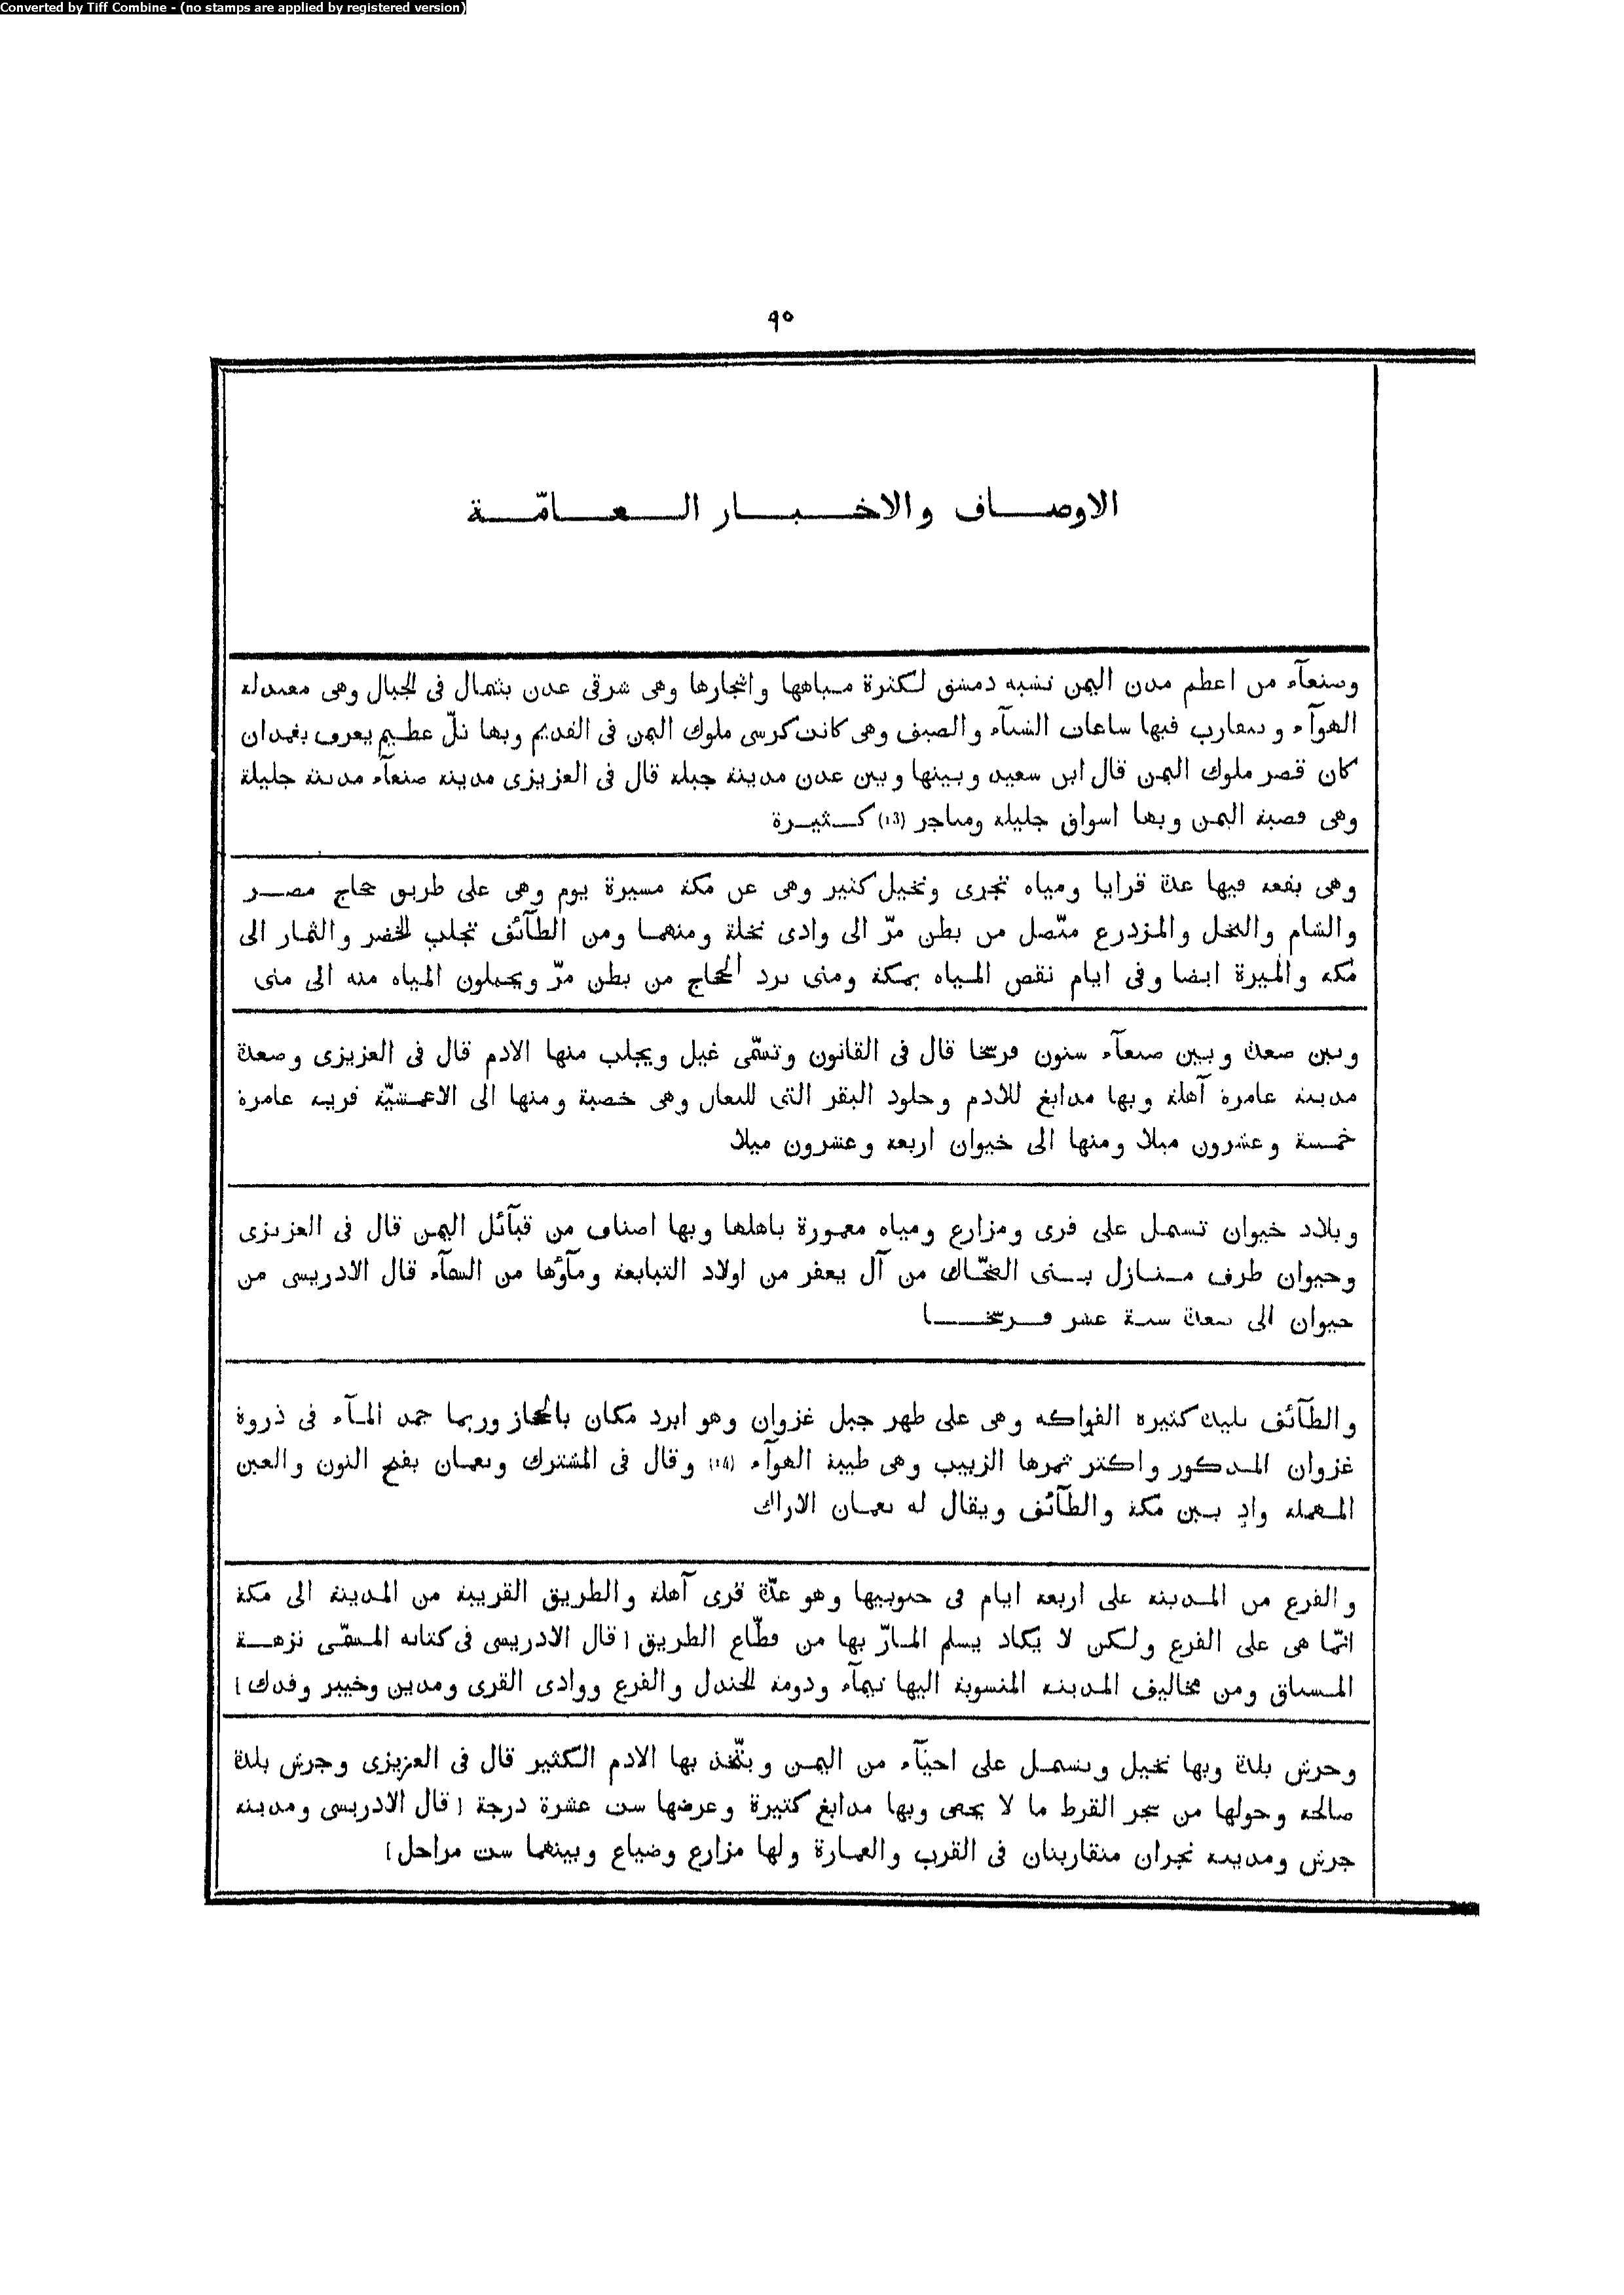 Converted by Tiff Combine - (no stamps are applied by registered version)
٩٥
الاوصاف والاخبار العامّة
وصنعآء من اعظم مدن اليمن تشبه دمشق لكثرة مياهها واشجارها وهى شرقى عدن بشمال فى الجبال وهى معتدلة
الهوآء وتتقارب فيها ساعات الشتآء والصيف وهى كانت كرسى ملوك اليمن فى القديم وبها تلّ عظيم يعرف بغمدان
كان قصر ملوك اليمن قال ابن سعيد وبينها وبين عدن مدينة جبلة قال فى العزيزى مدينة صنعآء مدينة جليلة
وهى قصبة اليمن وبها اسواق جليلة ومتاجر (13) كثيرة
وهى بقعة فيها عدة قرايا ومياه تجرى ونخيل كثير وهى عن مكة مسيرة يوم وهى على طريق حجاج مصر
والشام والنخل والمزدرع متّصل من بطن مرّ الى وادى نخلة ومنهما ومن الطآئف تجلب الخضر والثمار الى
مكة والميرة ايضا وفى ايام نقص المياه بمكة ومنى يرد الحجاج من بطن مرّ ويحملون المياه منه الى منى
وبين صعدة وبين صنعآء ستون فرسخا قال فى القانون وتسمّى غيل ويجلب منها الادم قال فى العزيزى وصعدة
مدينة عامرة آهلة وبها مدابغ للادم وجلود البقر التى للنعال وهى خصبة ومنها الى الاعمشيّة قرية عامرة
خمسة وعشرون ميلا ومنها الى خيوان اربعة وعشرون ميلا
وبلاد خيوان تشمل على قرى ومزارع ومياه معمورة باهلها وبها اصناف من قبآئل اليمن قال فى العزيزى
وخيوان طرف منازل بنى الضحّاك من آل يعفر من اولاد التبابعة ومآؤها من السمآء قال الادريسى من
خيوان الى صعدة ستة عشر فرسخا
والطآئف بليدة كثيرة الفواكه وهى على ظهر جبل غزوان وهو ابرد مكان بالحجاز وربما جمد المآء فى ذروة
غزوان المذكور واكثر ثمرها الزبيب وهى طيبة الهوآء (14) وقال فى المشترك ونعمان بفتح النون والعين
المهملة وادٍ بين مكة والطآئف ويقال له نعمان الاراك
والفرع من المدينة على اربعة ايام فى جنوبيها وهو عدّة قرى آهلة والطريق القريبة من المدينة الى مكة
انّما هى على الفرع ولكن لا يكاد يسلم المارّ بها من قطّاع الطريق [قال الادريسى فى كتابه المسمّى نزهة
المشتاق ومن مخاليف المدينة المنسوبة اليها تيمآء ودومة الجندل والفرع ووادى القرى ومدين وخيبر وفدك]
وجرش بلدة وبها نخيل وتشمل على احيآء من اليمن ويتّخذ بها الادم الكثير قال فى العزيزى وجرش بلدة
صالحة وحولها من شجر القرط ما لا يحصى وبها مدابغ كثيرة وعرضها ست عشرة درجة [قال الادريسى ومدينة
جرش ومدينة نجران متقاربتان فى القرب والعمارة ولها مزارع وضياع وبينهما ست مراحل]